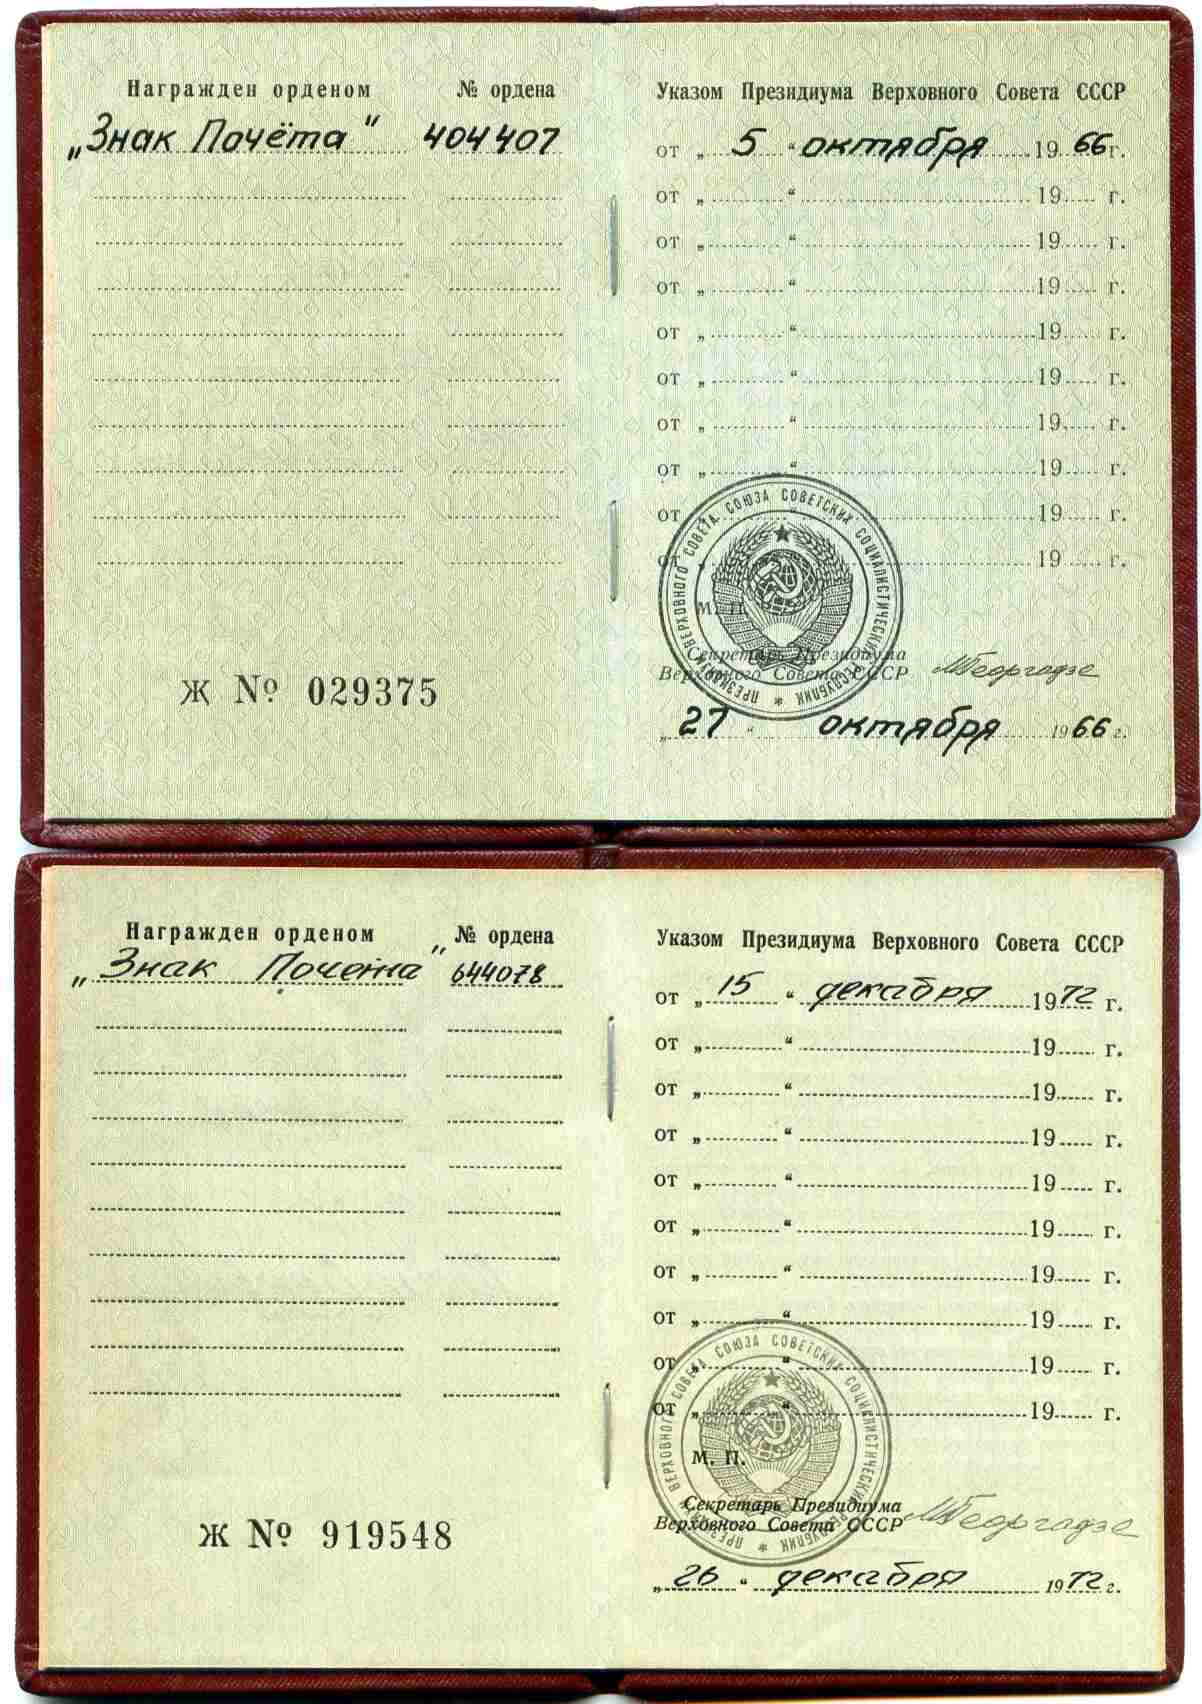 Награжден орденом № ордена
„Знак Почёта“ 404407
Ж № 029375
Указом Президиума Верховного Совета СССР
от „ 5 “ октября 19 66 г.
от „ “ 19 г.
от „ “ 19 г.
от „ “ 19 г.
от „ “ 19 г.
от „ “ 19 г.
от „ “ 19 г.
от „ “ 19 г.
от „ “ 19 г.
от „ “ 19 г.
ПРЕЗИДИУМ ВЕРХОВНОГО СОВЕТА СОЮЗА СОВЕТСКИХ СОЦИАЛИСТИЧЕСКИХ РЕСПУБЛИК *
М. П.
Секретарь Президиума
Верховного Совета СССР МГеоргадзе
„ 27 “ октября 19 66 г.
Награжден орденом № ордена
„Знак Почета“ 644078
Ж № 919548
Указом Президиума Верховного Совета СССР
от „ 15 “ декабря 19 72 г.
от „ “ 19 г.
от „ “ 19 г.
от „ “ 19 г.
от „ “ 19 г.
от „ “ 19 г.
от „ “ 19 г.
от „ “ 19 г.
от „ “ 19 г.
от „ “ 19 г.
ПРЕЗИДИУМ ВЕРХОВНОГО СОВЕТА СОЮЗА СОВЕТСКИХ СОЦИАЛИСТИЧЕСКИХ РЕСПУБЛИК *
М. П.
Секретарь Президиума
Верховного Совета СССР МГеоргадзе
„ 26 “ декабря 19 72 г.